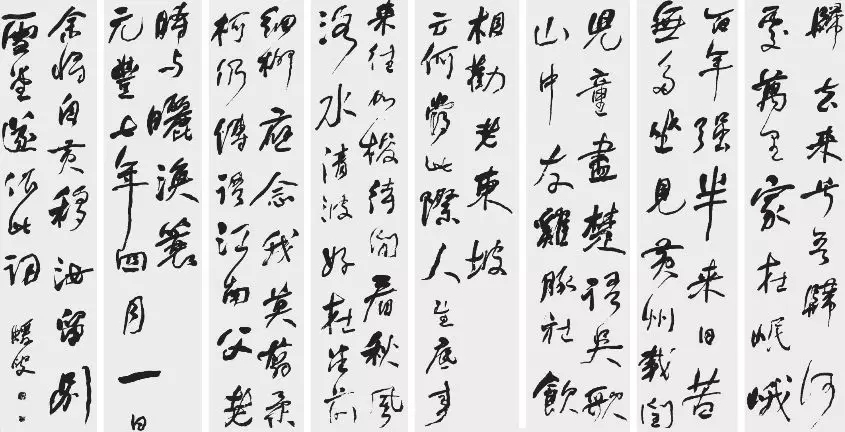 歸去来兮吾歸何
處萬里家在岷峨
百年强半来日苦
無多坐見黄州載閏
兒童盡楚語吳歌
山中友雞豚社飲
相勸老東坡
云何當此際人生底事
来往如梭待閒看秋風
洛水清波好在堂前
細柳應念我莫剪柔
柯仍傳語江南父老
時与曬漁蓑
元豐七年四月一日
余將自黄移汝留别
雪堂遂作此詞